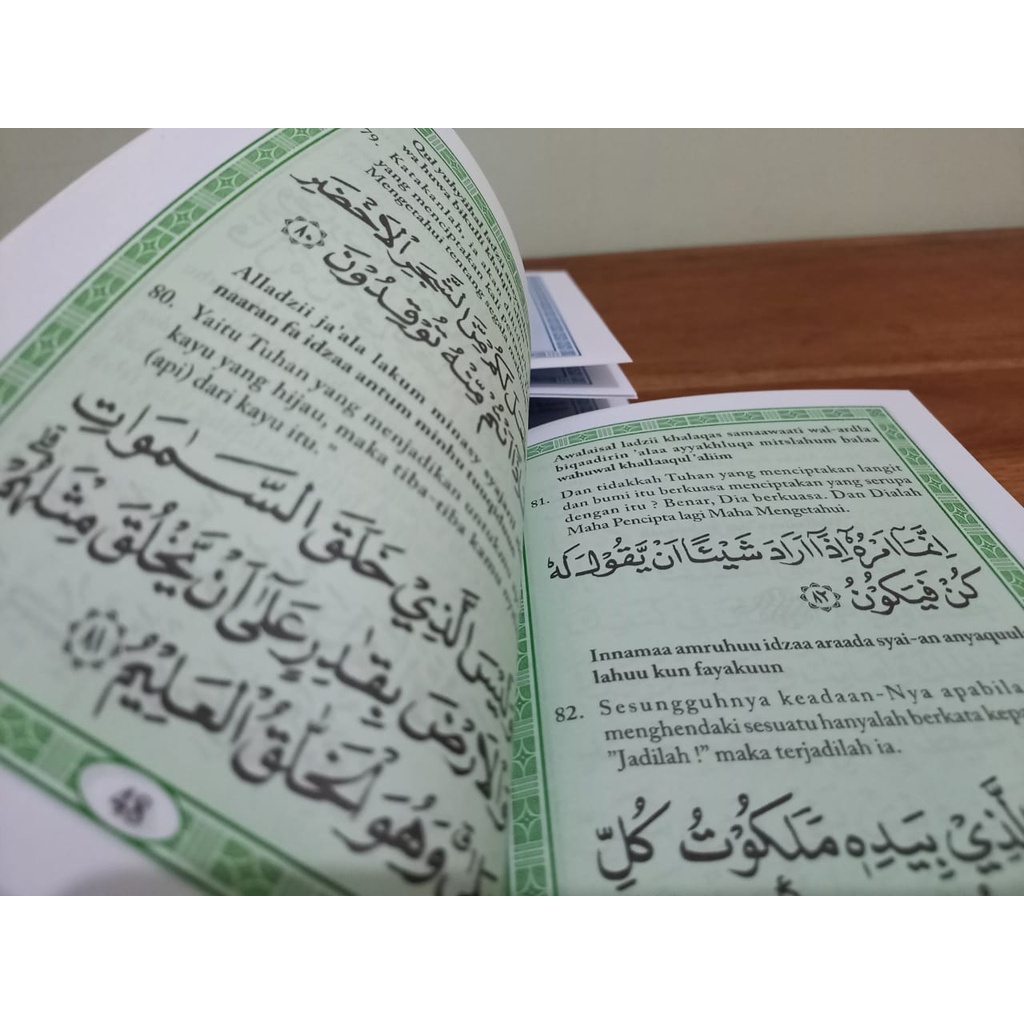 79.
Qul yuhyihal
wa huwa bikulli
Katakanlah ia akan
yang menciptakan kali
Mengetahui tentang segala
لَكُمْ مِّنَ الشَّجَرِ الْاَخْضَرِ
اَنْتُمْ مِّنْهُ تُوْقِدُوْنَ ٨٠
Alladzii ja'ala lakum minasy syajaril
naaran fa idzaa antum minhu tuuqiduun
80. Yaitu Tuhan yang menjadikan untukmu
kayu yang hijau, maka tiba-tiba kamu
(api) dari kayu itu."
الَّذِيْ خَلَقَ السَّمٰوَاتِ
وَالْاَرْضَ بِقٰدِرٍ عَلٰٓى اَنْ يَّخْلُقَ مِثْلَهُمْ
وَهُوَ الْخَلّٰقُ الْعَلِيْمُ ٨١
48
Awalaisal ladzii khalaqas samaawaati wal-ardla
biqaadirin 'alaa ayyakhluqa mitslahum balaa
wahuwal khallaaqul 'aliim
81. Dan tidakkah Tuhan yang menciptakan langit
dan bumi itu berkuasa menciptakan yang serupa
dengan itu ? Benar, Dia berkuasa. Dan Dialah
Maha Pencipta lagi Maha Mengetahui.
اِنَّمَآ اَمْرُهٗٓ اِذَآ اَرَادَ شَيْـًٔا اَنْ يَّقُوْلَ لَهٗ
كُنْ فَيَكُوْنُ ٨٢
Innamaa amruhuu idzaa araada syai-an anyaquul
lahuu kun fayakuun
82. Sesungguhnya keadaan-Nya apabila
menghendaki sesuatu hanyalah berkata
"Jadilah !" maka terjadilah ia.
بِيَدِهٖ مَلَكُوْتُ كُلِّ